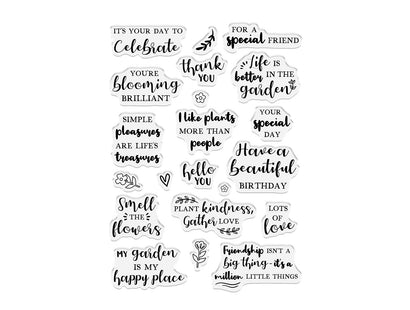 IT'S YOUR DAY TO
Celebrate
FOR A
special FRIEND
thank
YOU
Life is
better IN THE
garden
YOU'RE
blooming
BRILLIANT
SIMPLE
pleasures
ARE LIFE'S
treasures
I like plants
MORE THAN
people
YOUR
special
DAY
Have a
beautiful
BIRTHDAY
hello
YOU
Smell
THE
flowers
PLANT kindness,
Gather LOVE
LOTS
OF
love
MY garden
IS MY
happy place
Friendship ISN'T A
big thing - it's a
million LITTLE THINGS